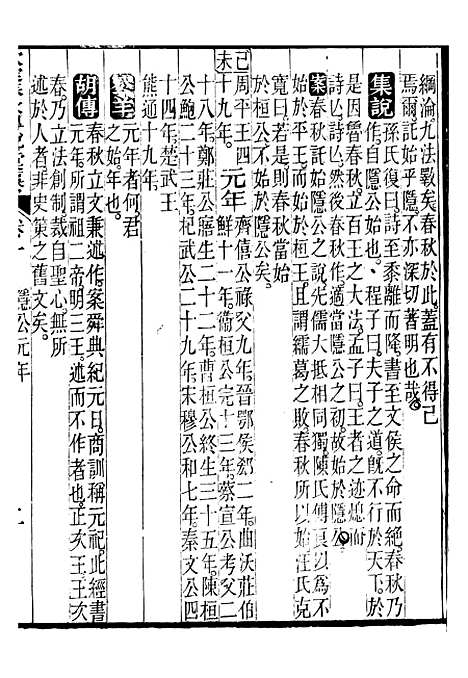 綱淪九法斁矣春秋於此蓋有不得已
焉爾託始乎隱不亦深切著明也哉
集說 孫氏復曰詩至黍離而降書至文侯之命而絕春秋乃
作自隱公始也 程子曰夫子之道旣不行於天下於
是因魯春秋立百王之大法 孟子曰王者之迹熄而
詩亡詩亡然後春秋作適當隱公之初故始於隱公
案 春秋託始隱公之說先儒大抵相同獨陳氏傅良以為不
始於平王而始於桓王且謂繻葛之敗春秋所以始汪氏克
寬曰若是則春秋當始
於桓公不始於隱公矣
己未 周平王四
十九年 元年 齊僖公祿父九年晉鄂侯郄二年曲沃莊伯
鮮十一年衞桓公完十三年蔡宣公考父二
十八年鄭莊公寤生二十二年曹桓公終生三十五年陳桓
公鮑二十三年杞武公二十九年宋穆公和七年秦文公四
十四年楚武王
熊通十九年
公羊 元年者何君
之始年也
胡傳 春秋立文兼述作案舜典紀元日商訓稱元祀此經書
元年所謂祖二帝明三王述而不作者也正次王王次
春乃立法創制裁自聖心無所
述於人者非史策之舊文矣
卷一 隱公元年